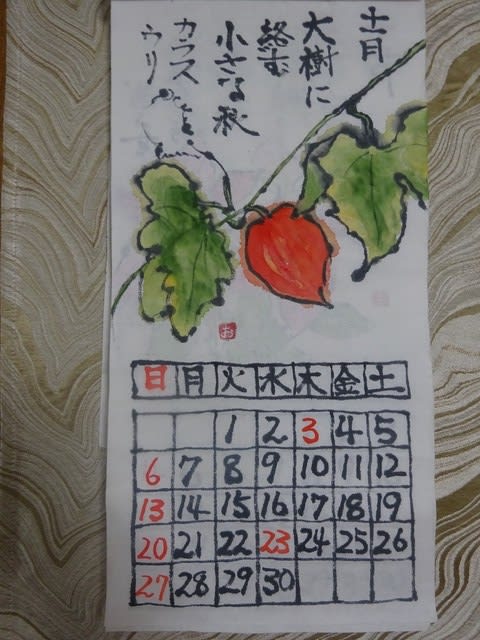 十一月
大樹に
絡む
小さな秋
カラス
ウリ
お
日 月 火 水 木 金 土
1 2 3 4 5
6 7 8 9 10 11 12
13 14 15 16 17 18 19
20 21 22 23 24 25 26
27 28 29 30